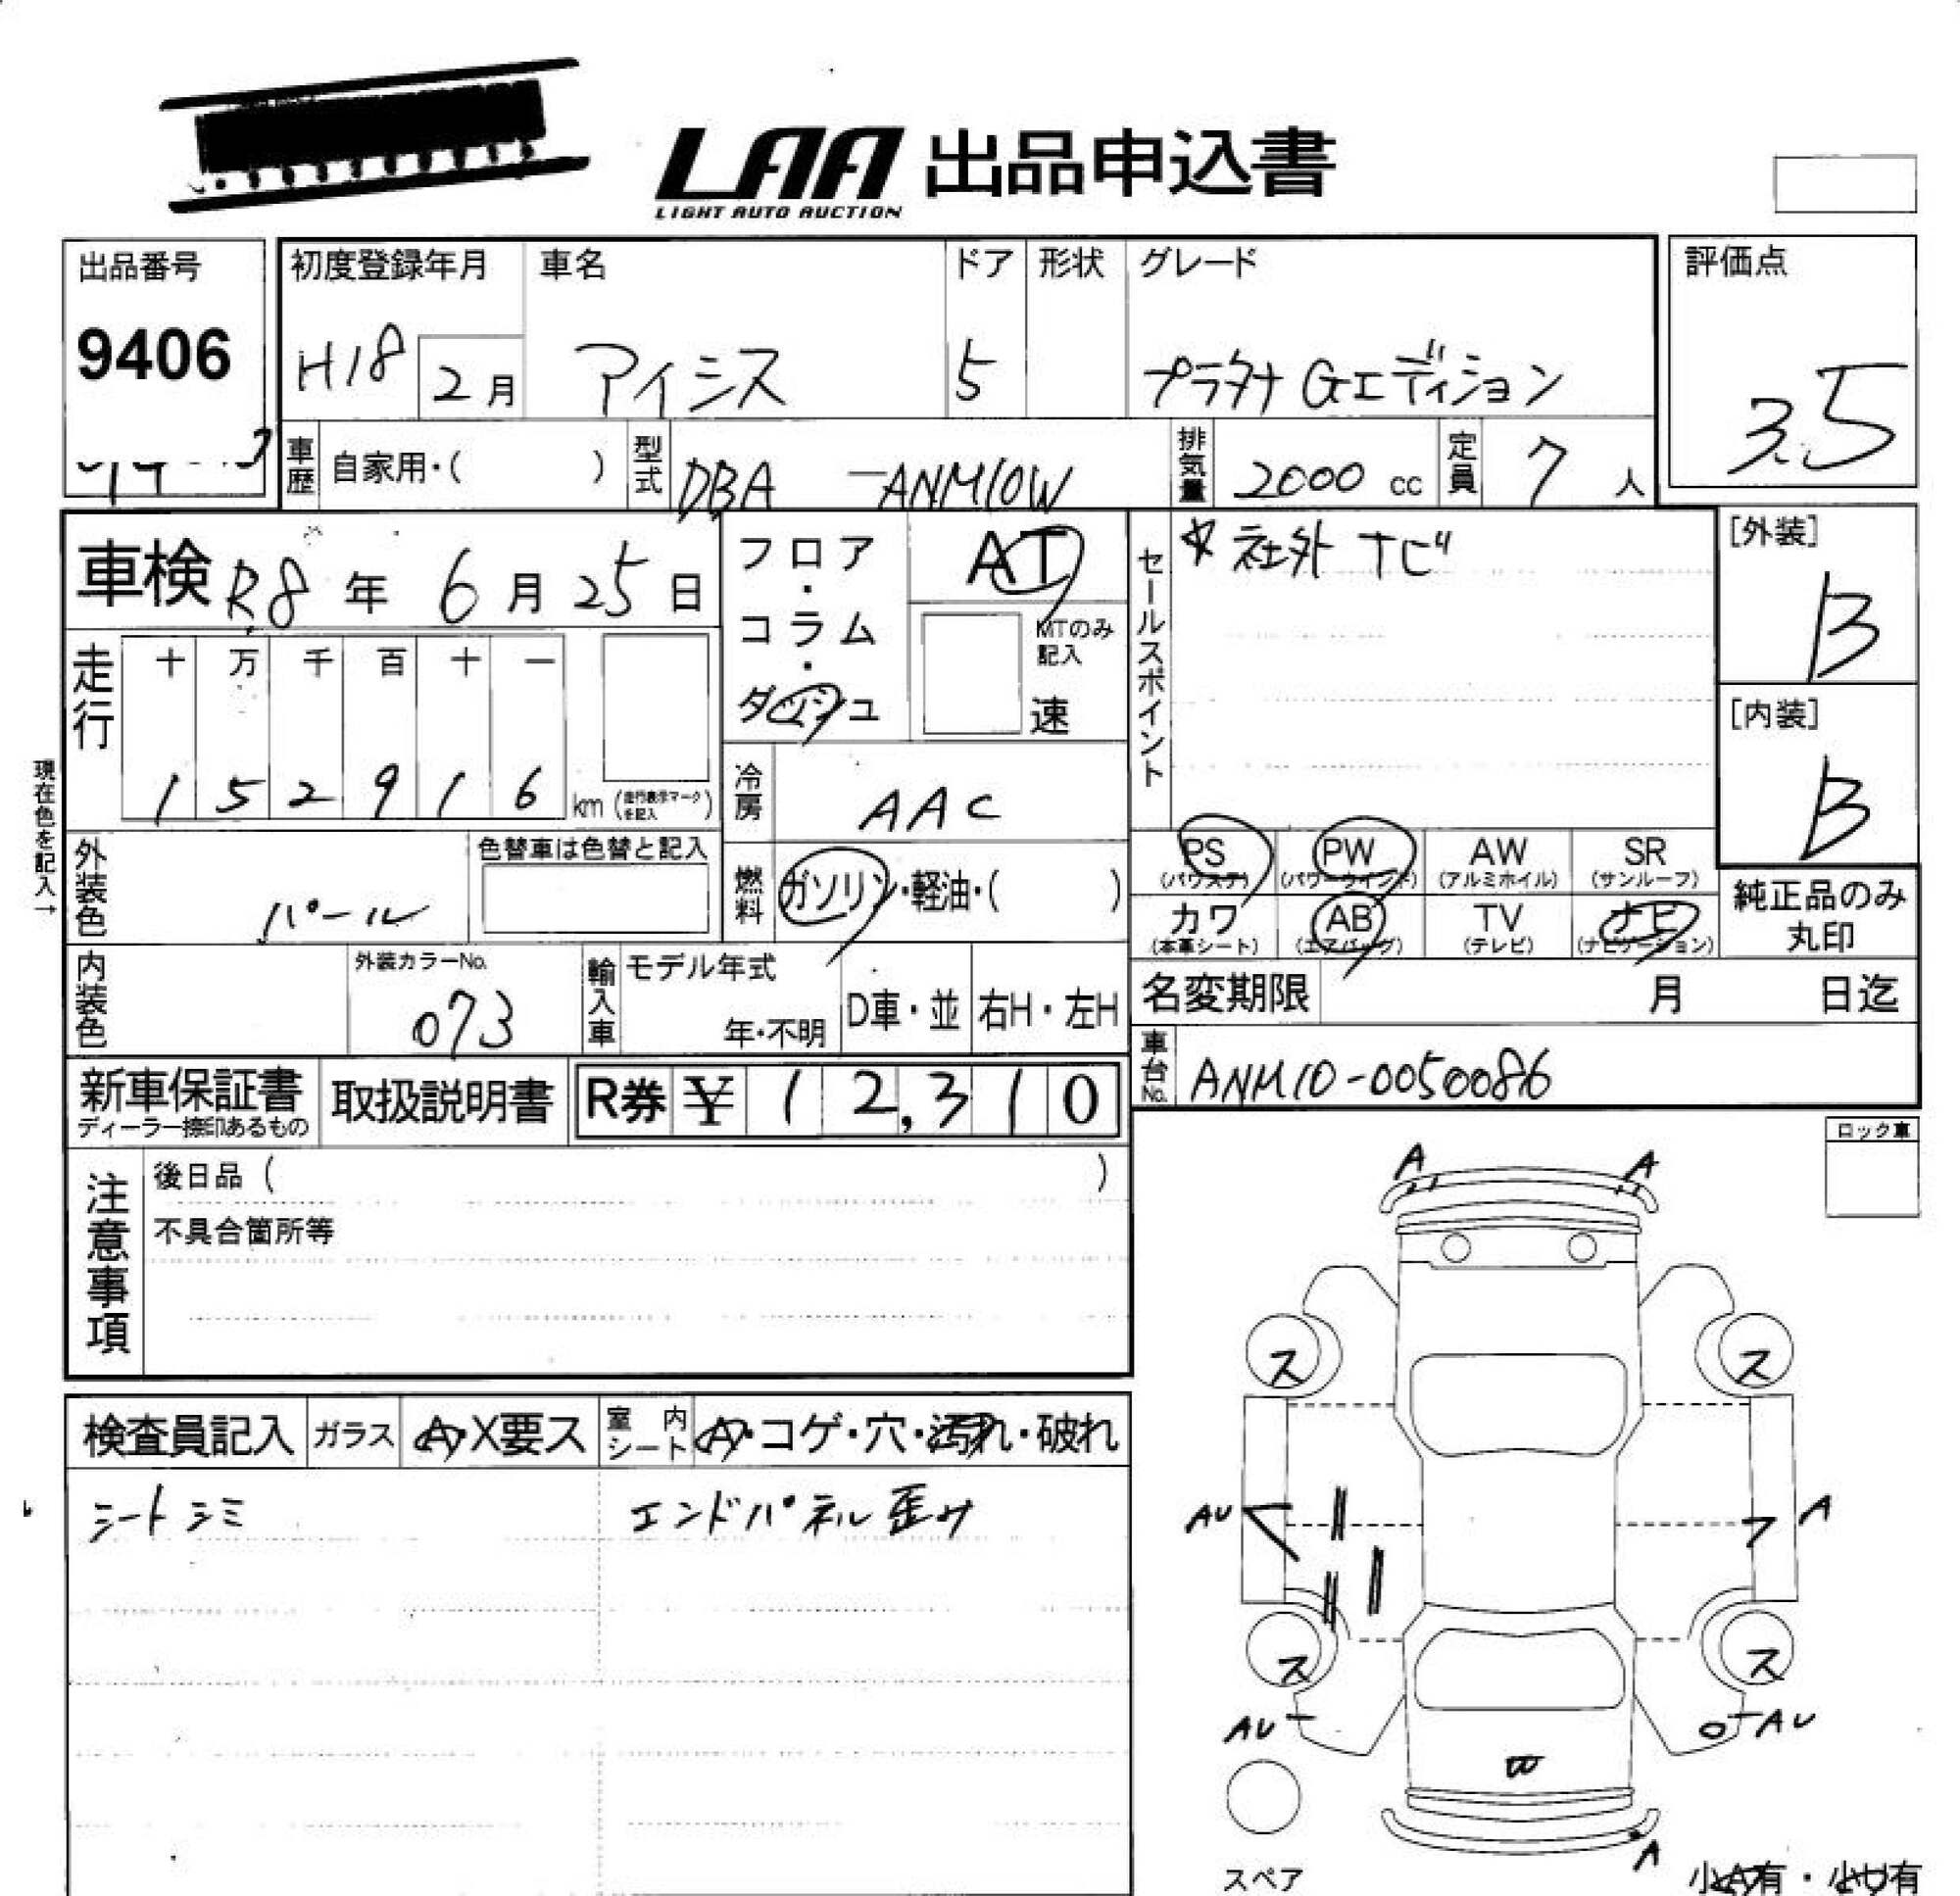 LAA 出品申込書
LIGHT AUTO AUCTION
出品番号
9406
初度登録年月
H18
2月
車名
アイシス
ドア
5
形状
グレード
プラタナ Gエディション
評価点
3.5
車歴
自家用・( )
型式
DBA -ANM10W
排気量
2000 cc
定員
7 人
車検 R8年 6月 25日
フロア・コラム・ダッシュ
AT
MTのみ記入
速
セールスポイント
☆社外ナビ
[外装]
B
[内装]
B
走行
十 万 千 百 十 一
1 5 2 9 1 6 km (走行表示マークを記入)
現在色を記入→
冷房
AAC
外装色
パール
色替車は色替と記入
燃料
ガソリン・軽油・( )
PS (パワステ)
PW (パワーウインド)
AW (アルミホイル)
SR (サンルーフ)
カワ (本革シート)
AB (エアバッグ)
TV (テレビ)
ナビ (ナビゲーション)
純正品のみ
丸印
内装色
外装カラーNo.
073
輸入車
モデル年式
年・不明
D車・並
右H・左H
名変期限 月 日迄
車台No.
ANM10-0050086
新車保証書
ディーラー捺印あるもの
取扱説明書
R券 ¥ 12,310
ロック車
注意事項
後日品 ( )
不具合箇所等
検査員記入
ガラス
A・X要ス
室内シート
A・コゲ・穴・汚れ・破れ
シートシミ
エンドパネル歪み
A
A
ス
ス
AU
A
ス
ス
AU
AU
W
A
スペア
小A有・小U有